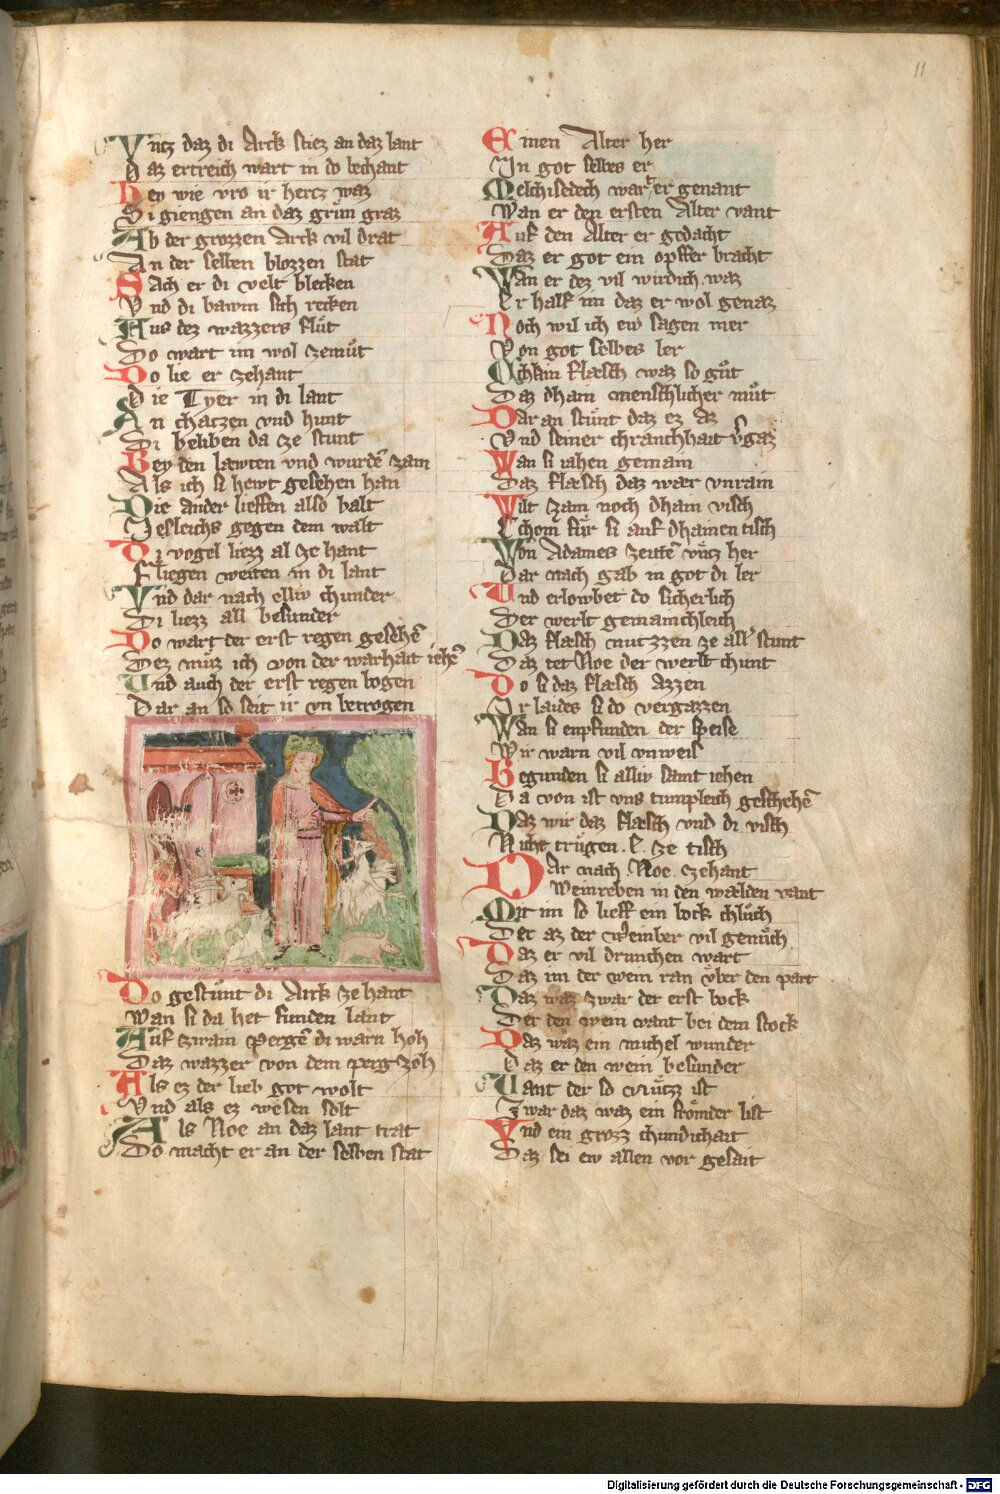 11
Vntz daz di Arck stiez an daz lant
Daz ertreich wart in do bechant
Hey wie vro ir hertz waz
Si giengen an daz grün graz
Ab der grozzen Arck vil drat
An der selben blozzen stat
Sach er di velt blecken
Vnd di bawm sich recken
Aus dez wazzers flůt
Do wart im wol zemůt
Do lie er zehant
Die Tyer in di lant
An chatzen vnd hunt
Di beliben da ze stunt
Bey den lawten vnd wurdē zam
Als ich si hewt gesehen han
Die ander liefften also balt
Iesleichs gegen dem walt
Di vogel liezz al ze hant
Fliegen weiten in di lant
Vnd dar nach elliv chunder
Di liezz all besunder
Do wart der erst regen geschēh
Dez můz ich von der warhait iehē
Vnd auch der erst regen bogen
Dar an so seit ir vn betrogen
Do gestůnt di Arck ze hant
Wan si da het funden lant
Auf zwain pergē di warn hoh
Daz wazzer von dem perg zoh
Als ez der lieb got wolt
Vnd als ez wesen solt
Als Noe an daz lant trat
Do macht er an der selben stat
Einen Alter her
In got selbes er
Melchisedech wart er genant
Wan er den ersten Alter vant
Auf den Alter er gedacht
Daz er got ein opffer bracht
Wan er dez vil wirdich waz
Er half im daz er wol genaz
Noch wil ich ew sagen mer
Von got selbes ler
Dchain flæsch waz so gůt
Daz dhain menschlicher můt
Dar an stůnt daz ez az
Vnd seiner chranchhait v̄gaz
Wan si iahen gemain
Daz flæsch daz wær vnrain
Wilt zam noch dham visch
Chom fůr si auf dhainen tisch
Von Adames zeitē vntz her
Dar nach gab in got di ler
Vnd erlowbet do sicherlich
Der werlt gemainchleich
Daz flæsch nutzzen ze all' stunt
Daz tet Noe der werlt chunt
Do si daz flæsch azzen
Ir laides si do vergazzen
Wan si enpfunden der speise
Wir warn vil vnweis
Begunden si alliv samt iehen
Da von ist vns tumpleich geschehē
Daz wir daz flæsch vnd di visch
Niht trůgen . E . ze tisch
Dar nach Noe zehant
Weinreben in den wælden vant
Mit im so lieff ein bock chlůch
Der az der weinber vil genůch
Daz er vil drunchen wart
Daz im der wein ran vͤber den part
Daz waz zwar der erst bock
Der den wein vant bei dem stock
Daz waz ein michel wunder
Daz er den wein besunder
Vant der so nůtzz ist
Zwar daz waz ein frömder list
Vnd ein grozz chundichait
Daz sei ew allen vor gesait
Digitalisierung gefördert durch die Deutsche Forschungsgemeinschaft - DFG